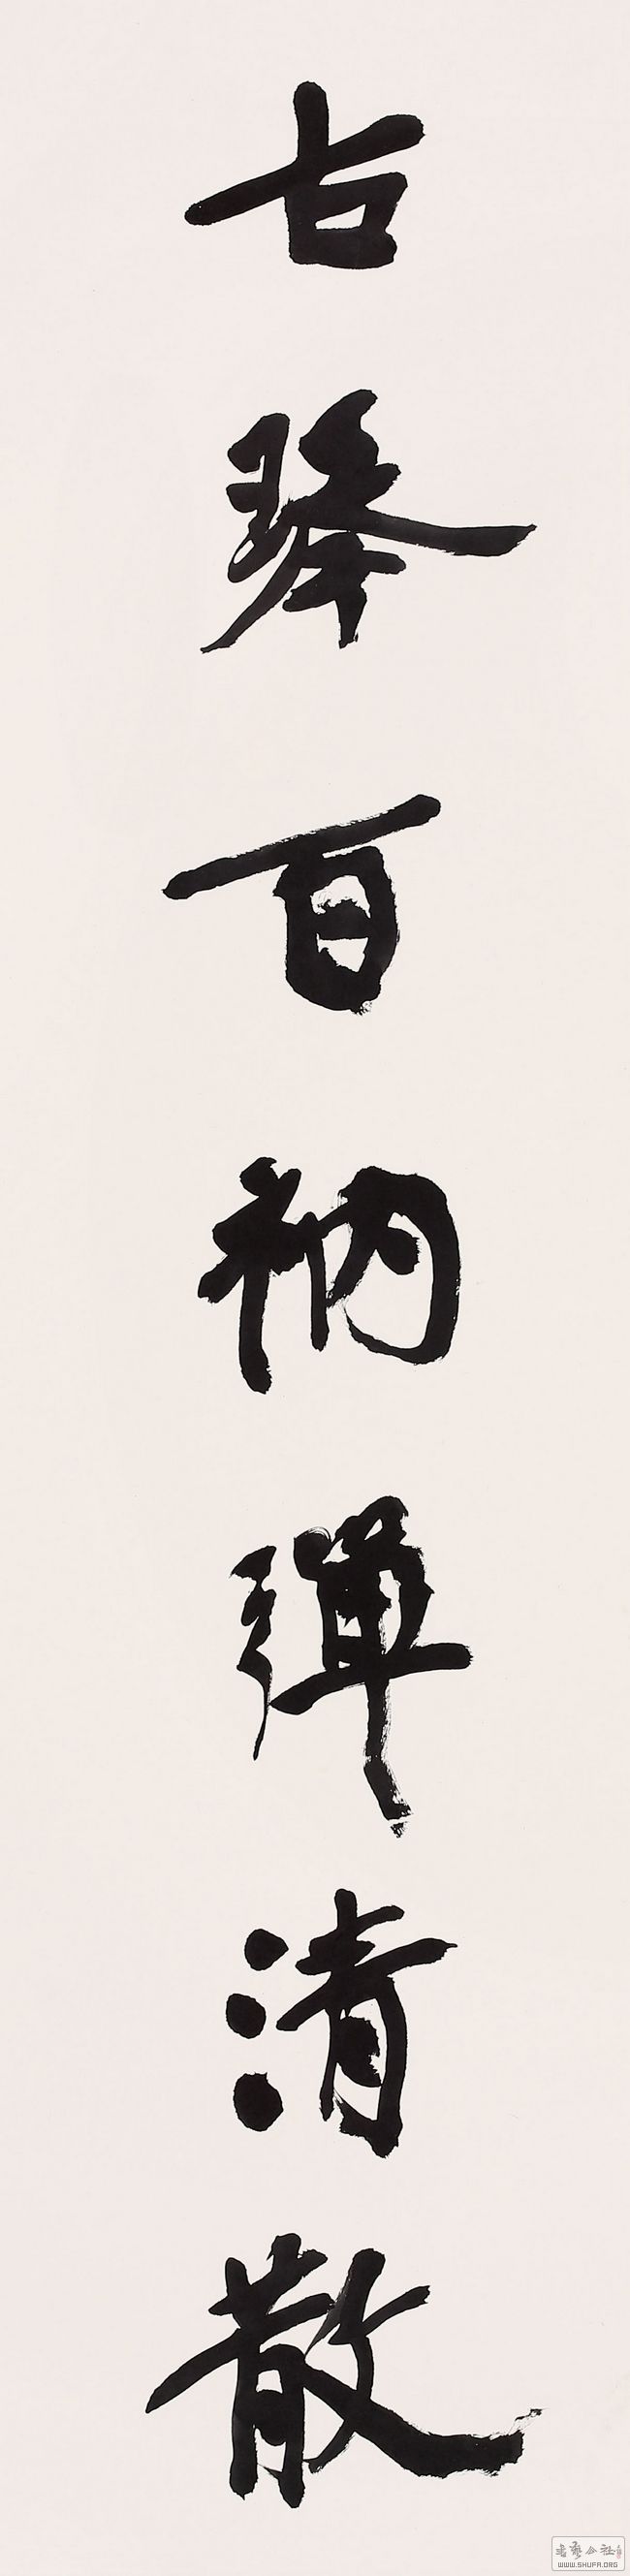 古琴百衲彈清散
WWW.SHUFA.ORG